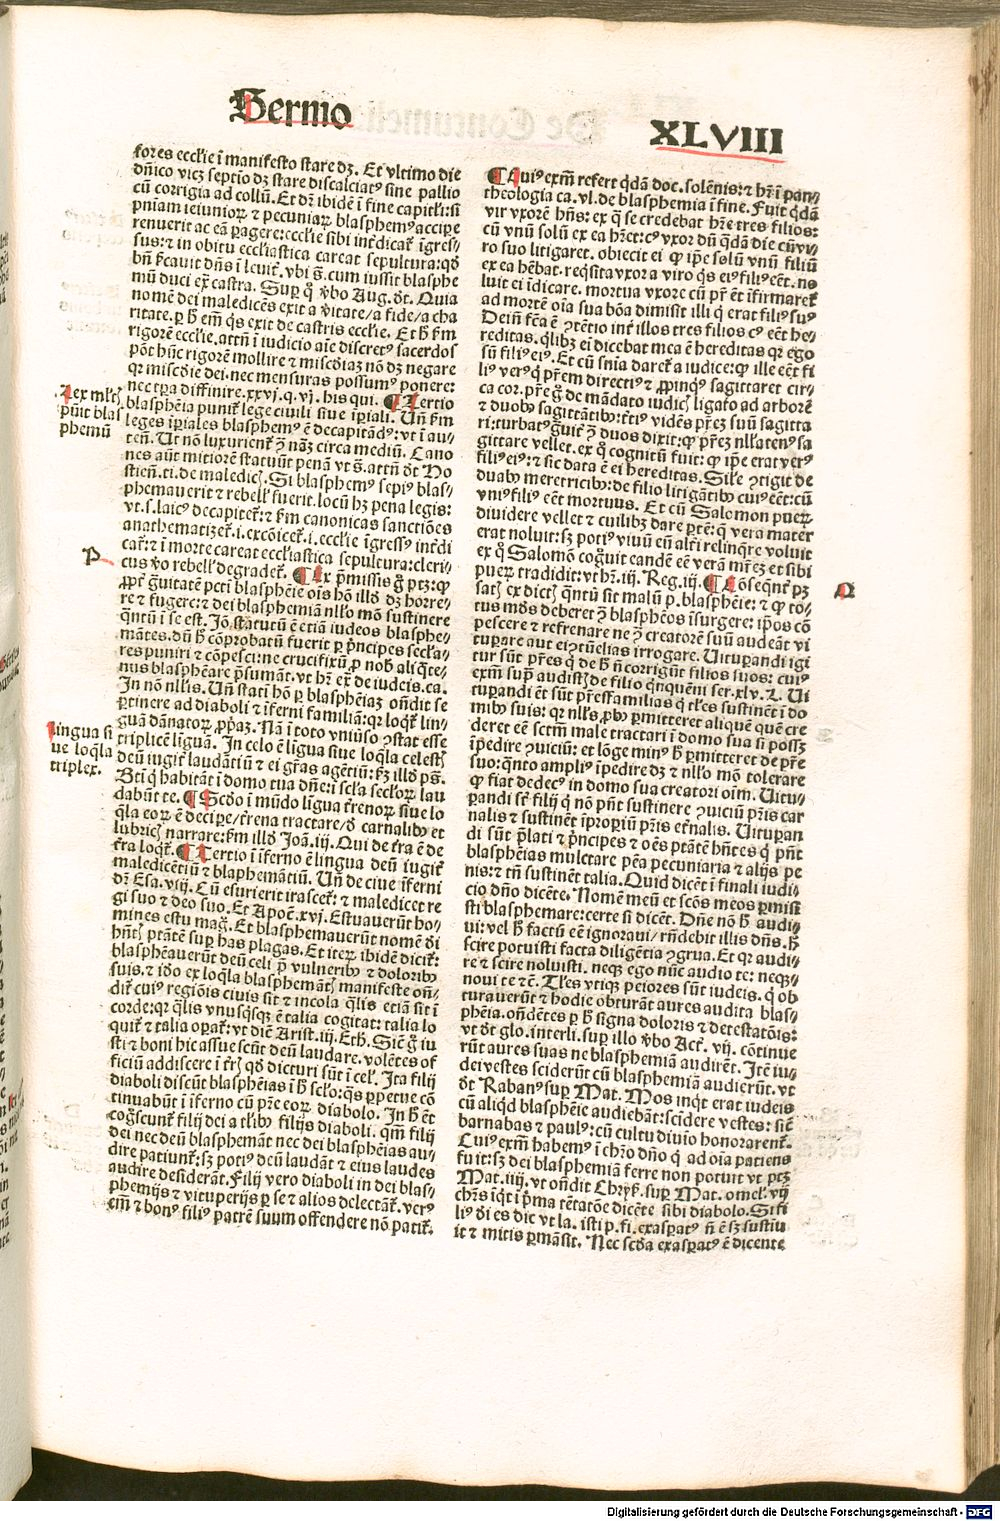 Sermo
XLVIII
fores eccl'ie ī manifesto stare dʒ. Et vltimo die
dñico vicꝫ septīo dꝫ stare discalciatꝰ sine pallio
cū corrigia ad collū. Et dꝛ ibidē ī fine capitl'i: si
pñiam ieiunioꝝ ⁊ pecuniaꝝ blasphemꝰ accipe
renuerit ac eā ꝑagere: eccl'ie sibi int'dicat' īgres/
sus: ⁊ in obitu eccl'iastica careat sepultura: qď
bñ sicauit dñs ī leuit'. vbi s̄. cum iussit blasphe
mū duci ex castra. Suꝑ qͦ v'bo Aug. dt. Quia
nomē dei maledicēs exit a v'itate/ a fide/ a cha
ritate. ꝑ h̄ em̄ qͥs exit de castris eccl'ie. Et h̄ fm
rigorē eccl'ie. attñ ī iudicio aīe discretꝰ sacerdos
pōt hūc rigorē mollire ⁊ miscdiaꝫ nō dꝫ negare
qꝛ miscdie dei. nec mensuras possumꝰ ponere:
nec tꝑa diffinire. xxvj. q. vj. his qui. ¶ Tertio
blasphēia punit' lege ciuili siue īꝑiali. Uñ fm
leges īꝑiales blasphemꝰ ē decapitādꝰ: vt ī au/
teñ. Ut nō luxurient' ꝯ̄ nāꝫ circa mediū. Cano
nes aūt mitiorē statuūt penā vt s̄. attñ dt No
stieñ. ti. de maledicꝫ. Si blasphemꝰ sepiꝰ blas/
phemauerit ⁊ rebell' fuerit. locū hꝫ pena legis:
vt. s. laicꝰ decapitet': ⁊ fm canonicas sanctiōes
anathematizet'. i. excōicet'. i. eccl'ie īgressꝰ int'di
cat': ⁊ ī morte careat eccl'iastica sepultura: cleri/
cus v'o rebell' degradet'. ¶ Ex p̄missis g̊ ptꝫ: ꝙ
ꝓpt' g̊uitatē pcti blasphēie oīs hō illd dꝫ horre/
re ⁊ fugere: ⁊ dei blasphemiā nllo mō sustinere
qͣntū ī se est. Jō statutū ē etiā iudeos blasphe/
mātes. dū h̄ cōprobatū fuerit ꝑ p̄ncipes secl'a/
res puniri ⁊ cōpesci: ne crucifixū ꝓ nob' aliqͣte/
nus blasphēare p̄sumāt. vt hꝛ ex' de iudeis. ca.
In nō nllis. Uñ stati hōi ꝑ blasphēiaꝫ oñdit se
ꝑtinere ad diaboli ⁊ īferni familiā: qꝛ loqt' lin/
guā dānatoꝝ ꝓpaꝫ. Nā ī toto vniūso ꝯstat esse
triplicē līguā. In celo ē līgua siue loqla celestꝫ
deū iugit' laudātiū ⁊ ei gr̄as agētiū: fꝫ illd ps̄.
Bti qͥ habitāt ī domo tua dñe: ī scl'a scl'oꝝ lau
dabūt te. ¶ Scdo ī mūdo līgua t'renoꝝ siue lo
qla eoꝝ ē decipe/ t'rena tractare/ d' carnalibꝰ et
lubricꝫ narrare: fm illd Joā. iij. Qui de t'ra ē de
t'ra loqt'. ¶ Tertio ī iferno ē lingua deū iugit'
maledicētiū ⁊ blasphemātiū. Uñ de ciue īferni
dꝛ Esa. viij. Cū esurierit irascet': ⁊ maledicet re
gi suo ⁊ deo suo. Et Apoc. xvj. Estuauerūt ho/
mines estu mag̊. Et blasphemauerūt nomē d'i
hñtꝫ ptātē suꝑ has plagas. Et iteꝝ ibidē dicit':
blasphēauerūt deū celi p̄ vulneribꝰ ⁊ doloribꝰ
suis. ⁊ iō ex loqla blasphemātꝫ manifeste oñ/
dit' cuiꝰ regiōis ciuis sit ⁊ incola qlis etiā sit ī
corde: qꝛ qlis vnusqͥsqꝫ ē talia cogitat: talia lo
quit' ⁊ talia oꝑat': vt dic̄ Arist. iij. Eth. Sic̄ g̊ iu
sti ⁊ boni hic assuescūt deū laudare. volētes of
ficiū addiscere ī t'rꝫ qď dicturi sūt ī cel'. Ita filij
diaboli discūt blasphēias ī h̄ sclo: qͣs ꝑpetue cō
tinuabūt ī iferno cū pr̄e eoꝝ diabolo. In h̄ ēt
cog̊scunt' filij dei a tl'ibꝰ filijs diaboli. qm̄ filij
dei nec deū blasphemāt nec dei blasphēias au/
dire patiunt': sꝫ potiꝰ deū laudāt ⁊ eius laudes
audire desiderāt. Filij vero diaboli in dei blas/
phemijs ⁊ vituperijs ꝑ se ⁊ alios delectāt'. verꝰ
em̄ ⁊ bonꝰ filiꝰ patrē suum offendere nō patit'.
Lex mltꝫ
pūit blas
phemū
P
Lingua si
ue loqla
triplex.
¶ Cuiꝰ exm̄ refert qdā doc. solēnis: ⁊ hꝛ ī pan/
theologia ca. vl. de blasphemia ī fine. Fuit qdā
vir vxorē hñs: ex q̄ se credebat hr̄e tres filios:
cū vnū solū ex ea hr̄et: cꝰ vxor dū qdā die cū vi/
ro suo litigaret. obiecit ei ꝙ ipe solū vnū filiū
ex ea hēbat. reqͥsita vxor a viro qͥs eiꝰ filiꝰ cēt. no
luit ei īdicare. mortua vxore cū pr̄ ēt īfirmaret'
ad mortē oīa sua bōa dimisit illi q̄ erat filiꝰ suꝰ
Dein fc̄a ē ꝯtētio int' illos tres filios cꝰ eēt he/
reditas. qlibꝫ ei dicebat mea ē hereditas qꝛ ego
sū filiꝰ eiꝰ. Et cū snīa daret' a iudice: ꝙ ille eēt fi
liꝰ verꝰ qͥ p̄rem directiꝰ ⁊ ꝓpinqͥꝰ sagittaret cir/
ca cor. pr̄e g̊ de mādato iudicꝫ ligato ad arborē
⁊ duobꝰ sagittātibꝰ: t'tiꝰ vidēs pr̄eꝫ suū sagitta
ri: turbatꝰ g̊uit' ꝯ̄ duos dixit: ꝙ pr̄eꝫ nllaten' sa
gittare vellet. ex qͦ cognitū fuit: ꝙ ipe erat verꝰ
filiꝰ eiꝰ: ⁊ sic data ē ei hereditas. Sil'e ꝯtigit de
duabꝰ meretricibꝰ: de filio litigātibꝰ cuiꝰ eēt: cū
vniꝰ filiꝰ eēt mortuus. Et cū Salomon pueꝝ
diuidere vellet ⁊ cuilibꝫ dare ꝑtē: q̄ vera mater
erat noluit: sꝫ potiꝰ viuū eū alt'i relinqre voluit
ex qͦ Salomō cog̊uit eandē eē verā mr̄eꝫ et sibi
pueꝝ tradidit: vt hꝛ. iij. Reg. iij. ¶ Cōseqnt' pꝫ
satꝫ ex dictꝫ qͣntū sit malū p. blasphēie: ⁊ ꝙ to/
tus mūs deberet ꝯ̄ blasphēos īsurgere: ipos cō
pescere ⁊ refrenare ne ꝯ̄ creatorē suū audeāt vi
tuꝑare aut eiꝯtūelias irrogare. Uituꝑandi igi
tur sūt pr̄es q̄ de h̄ ñ corrigūt filios suos: cuiꝰ
exm̄ sup̄ audistꝫ de filio qͥnquēni ser. xlv. L. Ui
tuꝑandi ēt sūt pr̄esfamilias q̄ tl'es sustinēt ī do
mibꝰ suis: qꝛ nllꝰ ꝓbꝰ ꝑmitteret aliquē quē cre
deret eē scīm male tractari ī domo sua si possꝫ
īpedire ꝯuiciū: et lōge minꝰ h̄ ꝑmitteret de pr̄e
suo: qͣnto ampliꝰ īpedire dꝫ ⁊ nllo mō tolerare
ꝙ fiat dedecꝰ in domo sua creatori oīm. Uitu/
ꝑandi st' filij q̄ nō pñt sustinere ꝯuiciū pr̄is car
nalis ⁊ sustinēt īproꝑiū pr̄is et'nalis. Uituꝑan
di sūt p̄lati ⁊ p̄ncipes ⁊ oēs ptātē hñtes q̄ pñt
blasphēias mulctare pēa pecuniaria ⁊ alijs pe
nis: ⁊ tñ sustinēt talia. Quid dicēt ī finali iudi/
cio dño dicēte. Nomē meū et scōs meos ꝑmisi/
sti blasphemare: certe si dicēt. Dñe nō h̄ audi/
ui: vel h̄ factū eē ignoraui/ rñdebit illis dñs. h̄
scire potuisti facta diligētia ꝯgrua. Et qꝛ audi/
re ⁊ scire noluisti. neqꝫ ego nūc audio te: neqꝫ
noui te ⁊c̄. Tl'es vtiqꝫ peiores sūt iudeis. qͥ ob
turauerūt ⁊ hodie obturāt aures audita blas/
phēia. oñdētes ꝑ h̄ signa doloris ⁊ detestatōis:
vt dt glo. interli. suꝑ illo v'bo Act'. vij. cōtinue
rūt aures suas ne blasphemiā audirēt. Itē iu/
dei vestes sciderūt cū blasphemiā audierūt. vt
dt Rabanꝰ suꝑ Mat. Mos inqt erat iudeis
cū aliqd blasphēie audiebāt: scidere vestes: sic̄
barnabas ⁊ paulꝰ: cū cultu diuīo honorarent'.
Cuiꝰ exm̄ habemꝰ ī chr̄o dño qͥ ad oīa patiens
fuit: sꝫ dei blasphemiā ferre non potuit vt ptꝫ
Mat. iiij. vt oñdit Chrys̄. suꝑ Mat. omel'. vij
chr̄s īqͥt ī p̄ma tētatōe dicēte sibi diabolo. Si fi
liꝰ d'i es dic vt la. isti p. fi. exasꝑatꝰ ñ ē sꝫ sustiu
it ⁊ mitis ꝑmāsit. Nec scďa exasꝑatꝰ ē dicente
Q
Digitalisierung gefördert durch die Deutsche Forschungsgemeinschaft - DFG